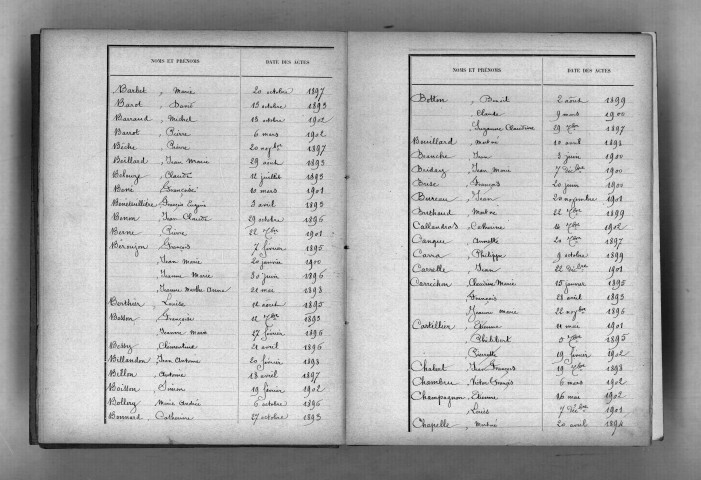 NOMS ET PRÉNOMS DATE DES ACTES
Barbet , Marie 20 octobre 1897
Barot , 15 octobre 1893
Barraud , Michel 13 octobre 1902
Barrot , Pierre 6 mars 1902
Bêche , Pierre 20 novbre 1897
Beillard , Jean Marie 29 août 1893
, Claude 12 juillet 1893
Françoise 10 mars 1901
François Eugène 3 avril 1893
Benon , Jean Claude 29 octobre 1896
Berne , Pierre 22 1901
Béroujon , François 7 février 1895
, Jean Marie 20 janvier 1900
, Jeanne Marie 30 juin 1896
, Jeanne Marthe Anna 21 mai 1898
Berthier , Louise 11 août 1895
Besson , Françoise 1893
, Jeanne Marie 27 février 1896
Bessy , Clémentine 21 avril 1896
Billandon , Jean Antoine 20 février 1898
Billon , Antoine 18 avril 1897
Boisson , Simon 19 février 1902
, Marie Andrée 6 octobre 1896
Bonnard , Catherine 27 octobre 1893
NOMS ET PRÉNOMS DATE DES ACTES
Botton , Benoit 2 août 1899
, Claude 9 mars 1900
, Suzanne Claudine 29 1897
Bouillard , 10 avril 1898
Branche , Jean 3 juin 1900
, Jean Marie 7 décbre 1900
Brise , François 20 juin 1900
Bureau , Jean 20 novembre 1901
22 1899
, Catherine 1902
, Annette 20 1897
Carra , Philippe 9 octobre 1899
Carrelle , Jean 22 décbre 1901
Carrichon , Claudine Marie 15 janvier 1895
, François 28 avril 1893
, Jeanne Marie 22 novbre 1896
Castellier , Etienne 11 mai 1901
, Philibert 1895
, Pierrette 19 février 1902
Chabert , Jean François 19 1898
Chambru , Victor François 6 mars 1902
Champagnon , Etienne 16 mai 1902
, Louis 7 décbre 1901
Chapelle , 20 avril 1894